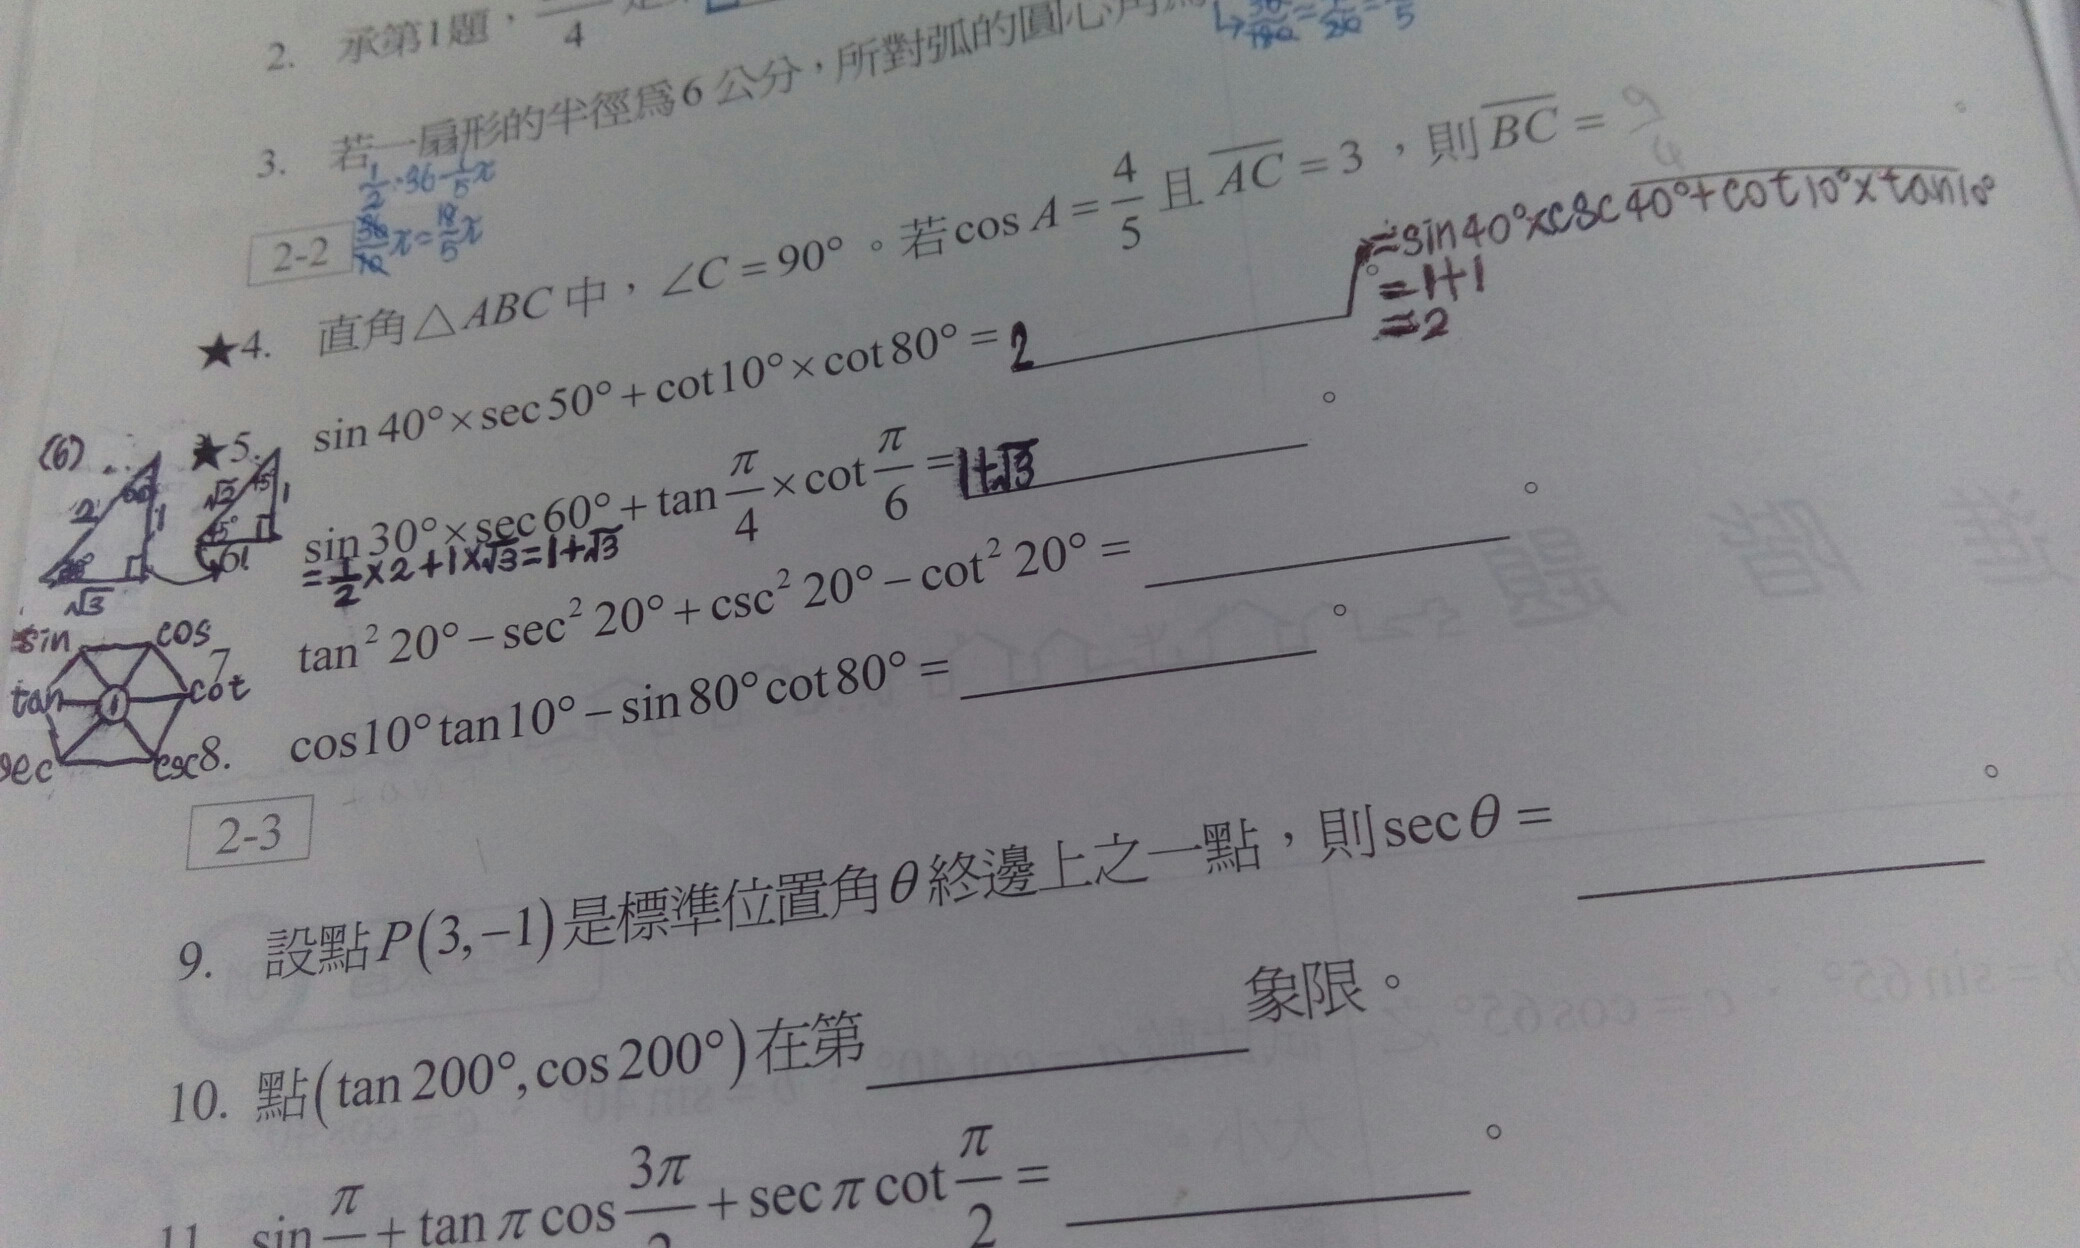 2. 承第1題,
4
3. 若一扇形的半徑為6公分,所對弧的圓心角
1/2·36·1/5π
36/10π=18/5π
2-2
★4. 直角△ABC中,∠C=90°。若cos A=4/5且AC=3,則BC=9/4。
★5. sin40°×sec50°+cot10°×cot80°=2。
=sin40°×csc40°+cot10°×tan10°
=1+1
=2
6. sin30°×sec60°+tan π/4×cot π/6=1+√3。
=1/2×2+1×√3=1+√3
(6)
2 60° 1
30°
√3
√2 45° 1
45°
1
7. tan²20°−sec²20°+csc²20°−cot²20°=。
8. cos10°tan10°−sin80°cot80°=。
sin cos
tan 1 cot
sec csc
2-3
9. 設點P(3,−1)是標準位置角θ終邊上之一點,則secθ=。
10. 點(tan200°,cos200°)在第象限。
11. sin π/ + tanπ cos 3π/2 + secπ cot π/2 =。
進階題